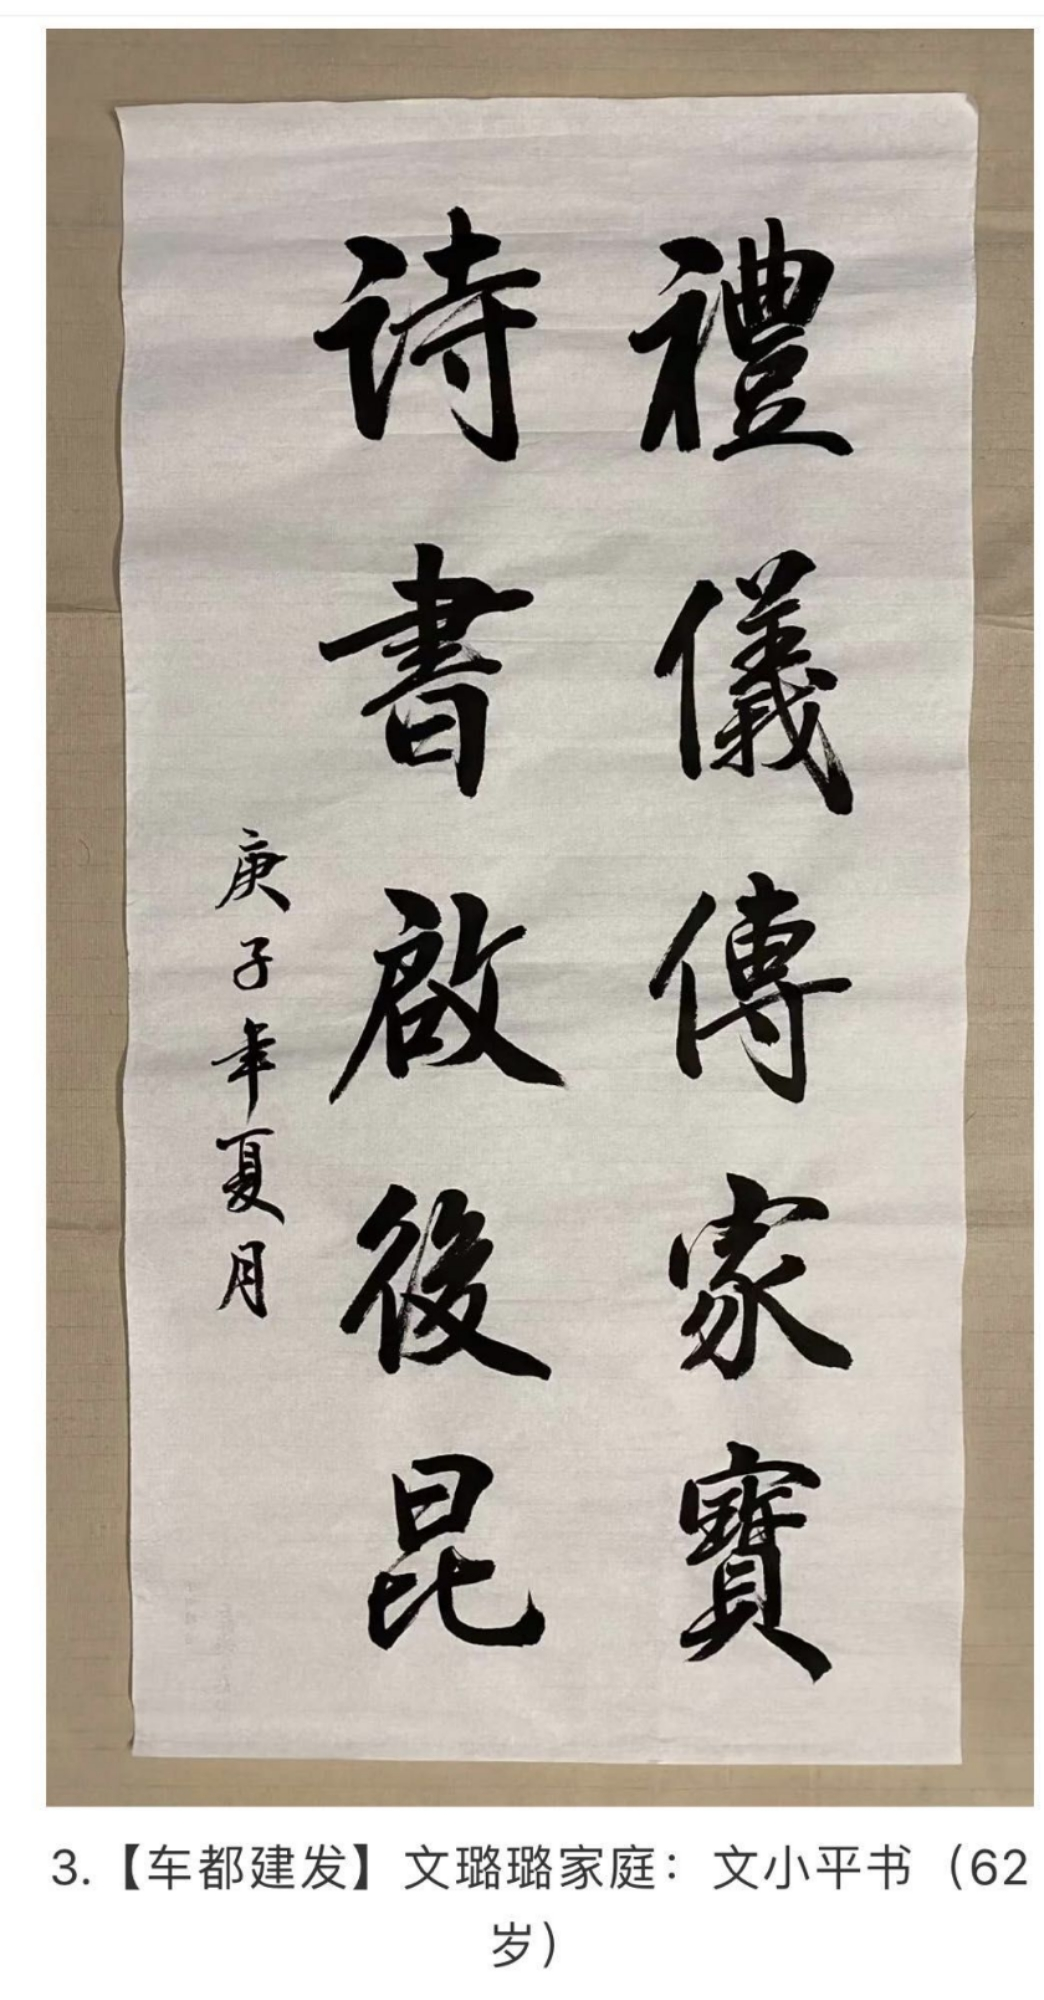 禮儀傳家寶
诗書啟後昆
庚子年夏月
3.【车都建发】文璐璐家庭：文小平书（62
岁）